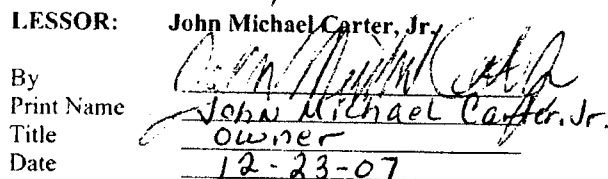 LESSOR: John Michael Carter, Jr.
By
Print Name John Michael Carter, Jr.
Title Owner
Date 12-23-07